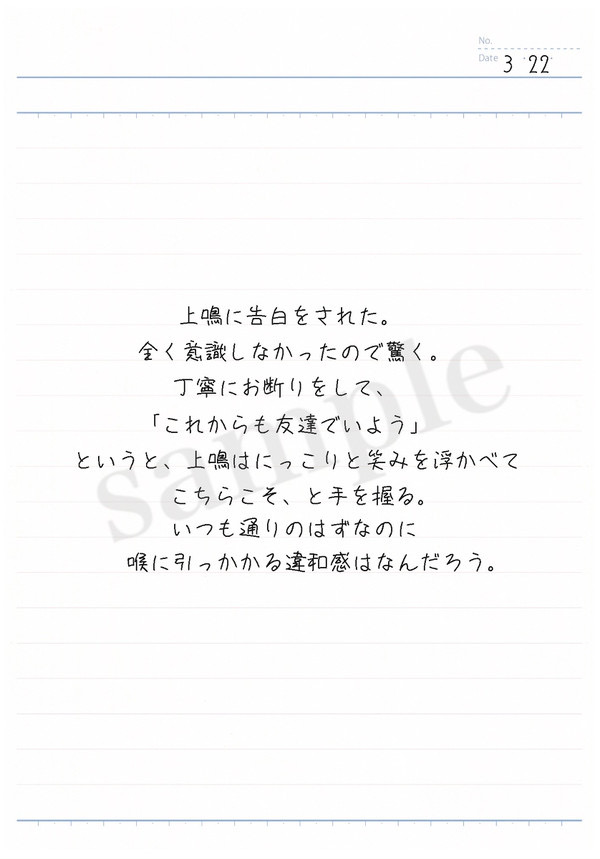 No.
Date 3・22・
上鳴に告白をされた。
全く意識しなかったので驚く。
丁寧にお断りをして、
「これからも友達でいよう」
というと、上鳴はにっこりと笑みを浮かべて
こちらこそ、と手を握る。
いつも通りのはずなのに
喉に引っかかる違和感はなんだろう。
sample